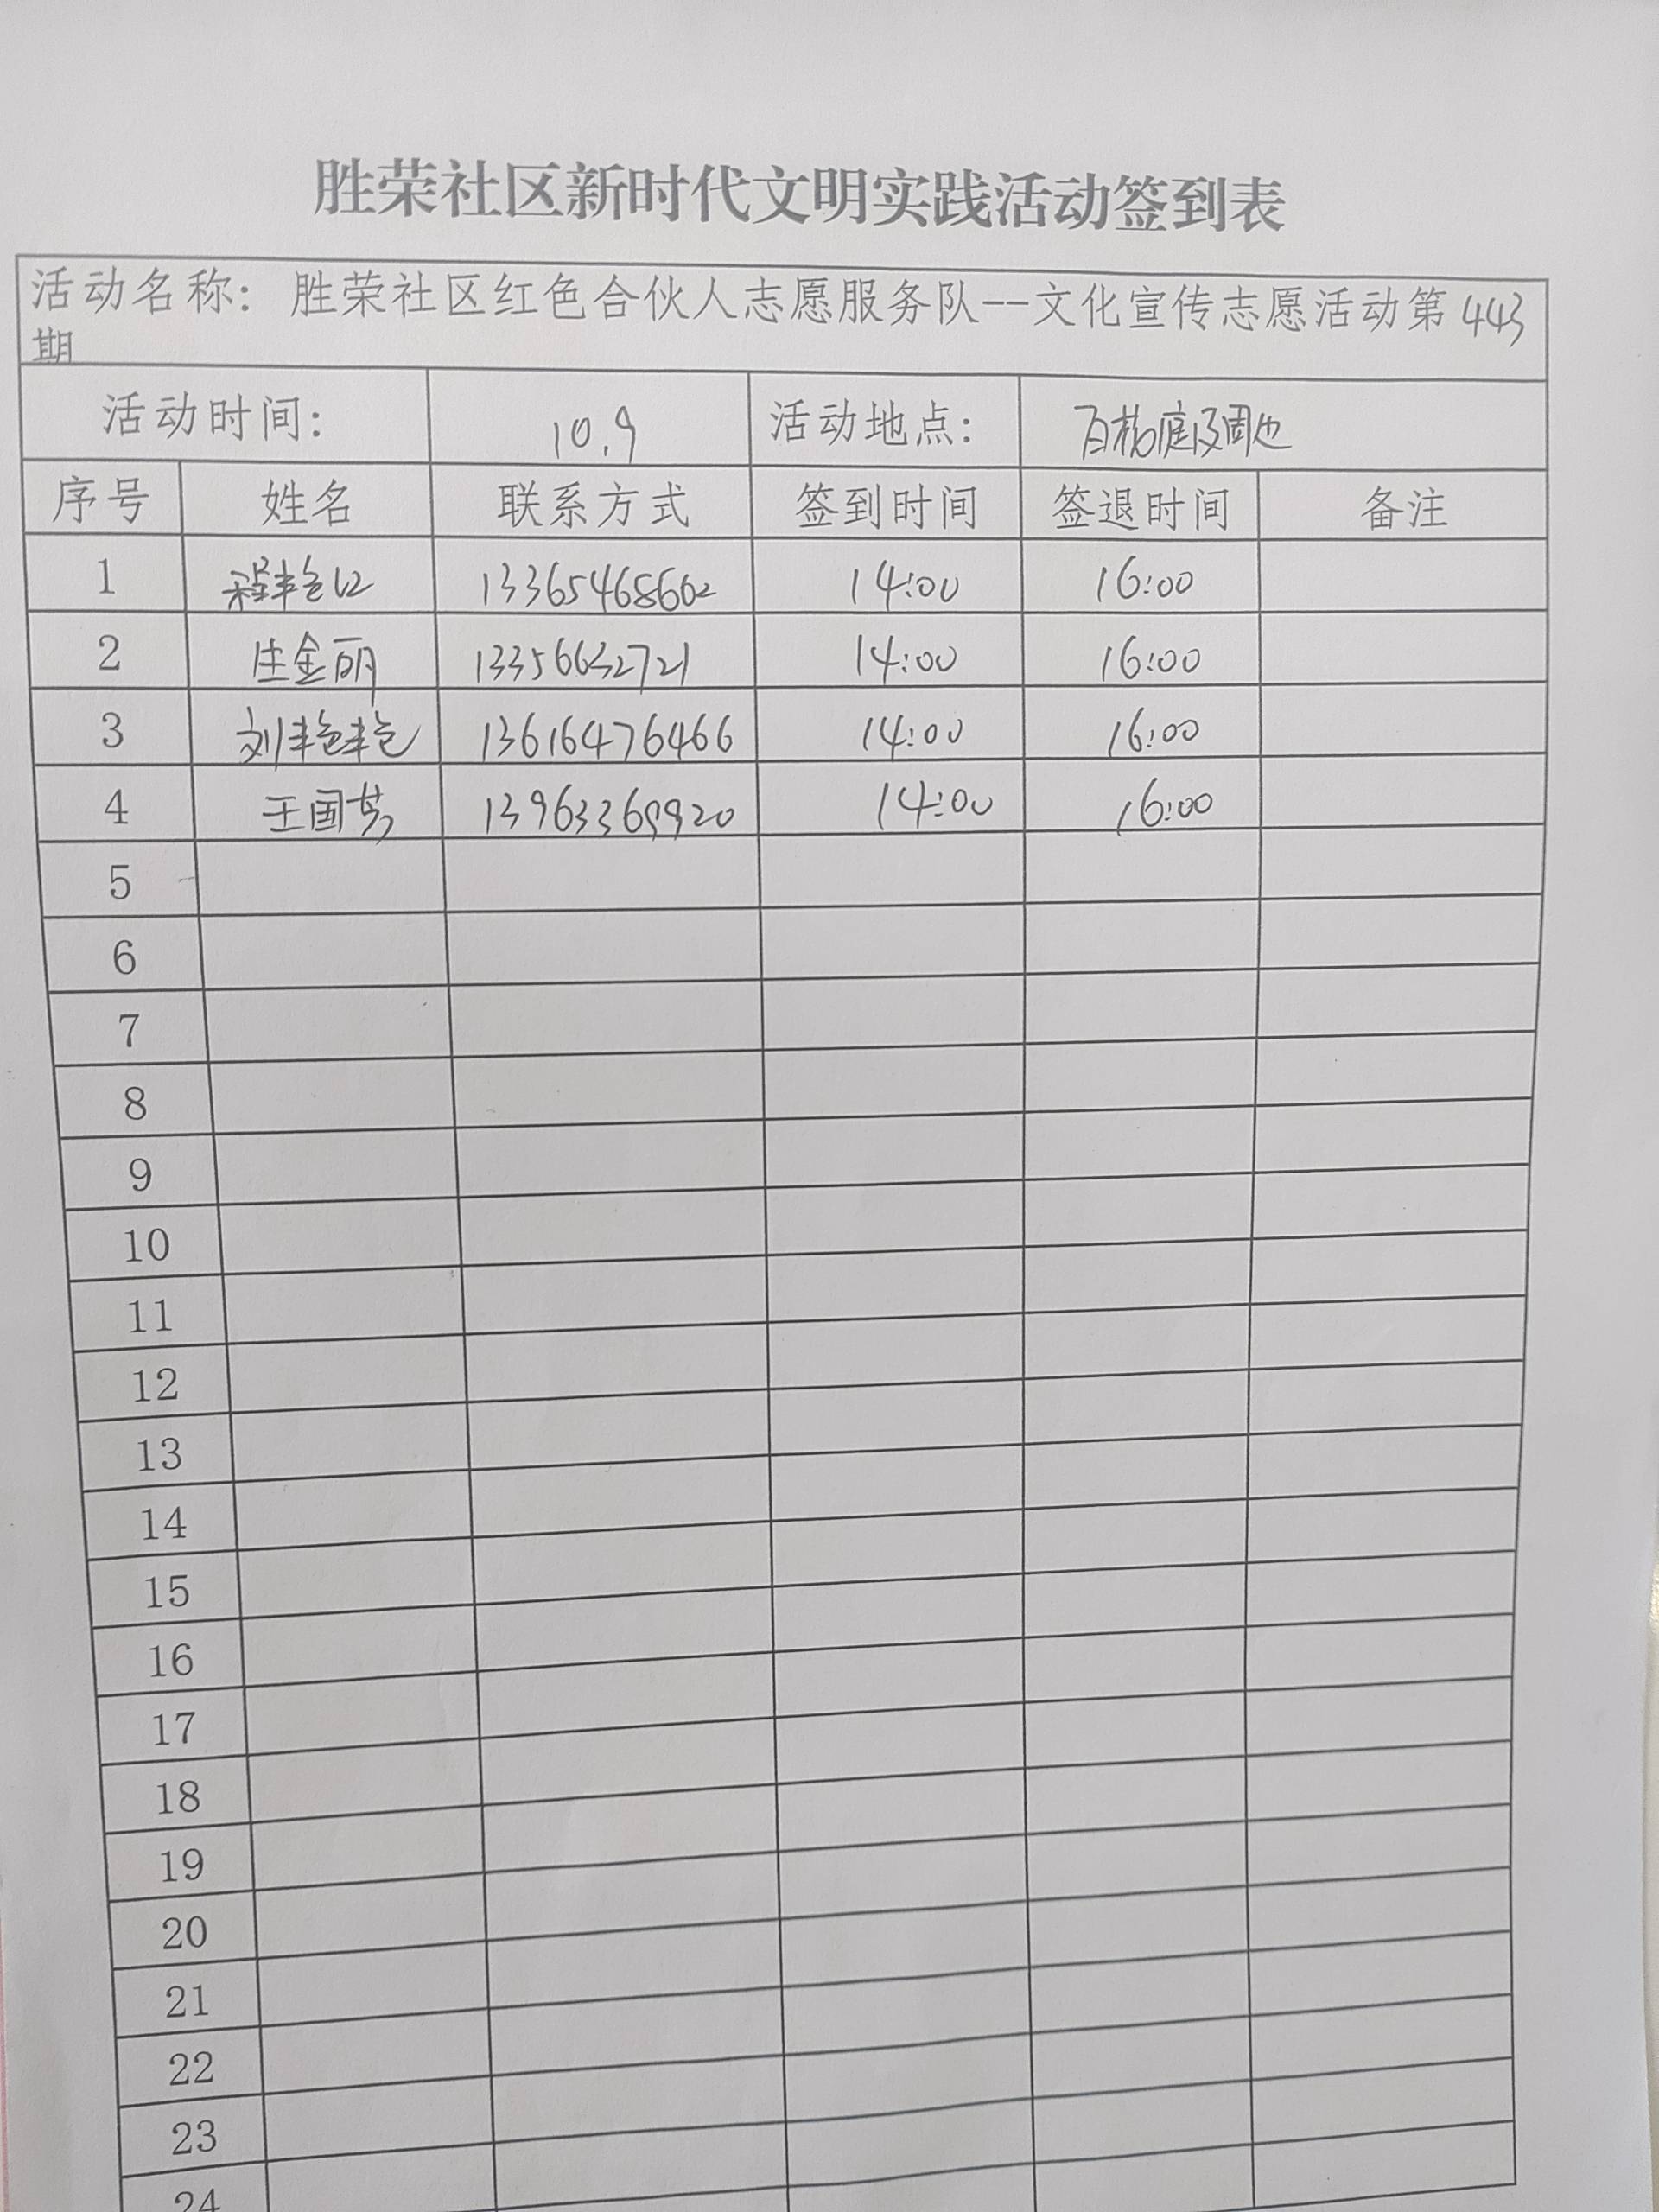 胜荣社区新时代文明实践活动签到表
活动名称: 胜荣社区红色合伙人志愿服务队--文化宣传志愿活动第443
期
活动时间: 10.9 活动地点: 百格庭及周边
序号 姓名 联系方式 签到时间 签退时间 备注
1 程艳红 13365468602 14:00 16:00
2 庄金丽 13356632721 14:00 16:00
3 刘艳艳 13616476466 14:00 16:00
4 王国芳 13963369920 14:00 16:00
5
6
7
8
9
10
11
12
13
14
15
16
17
18
19
20
21
22
23
24